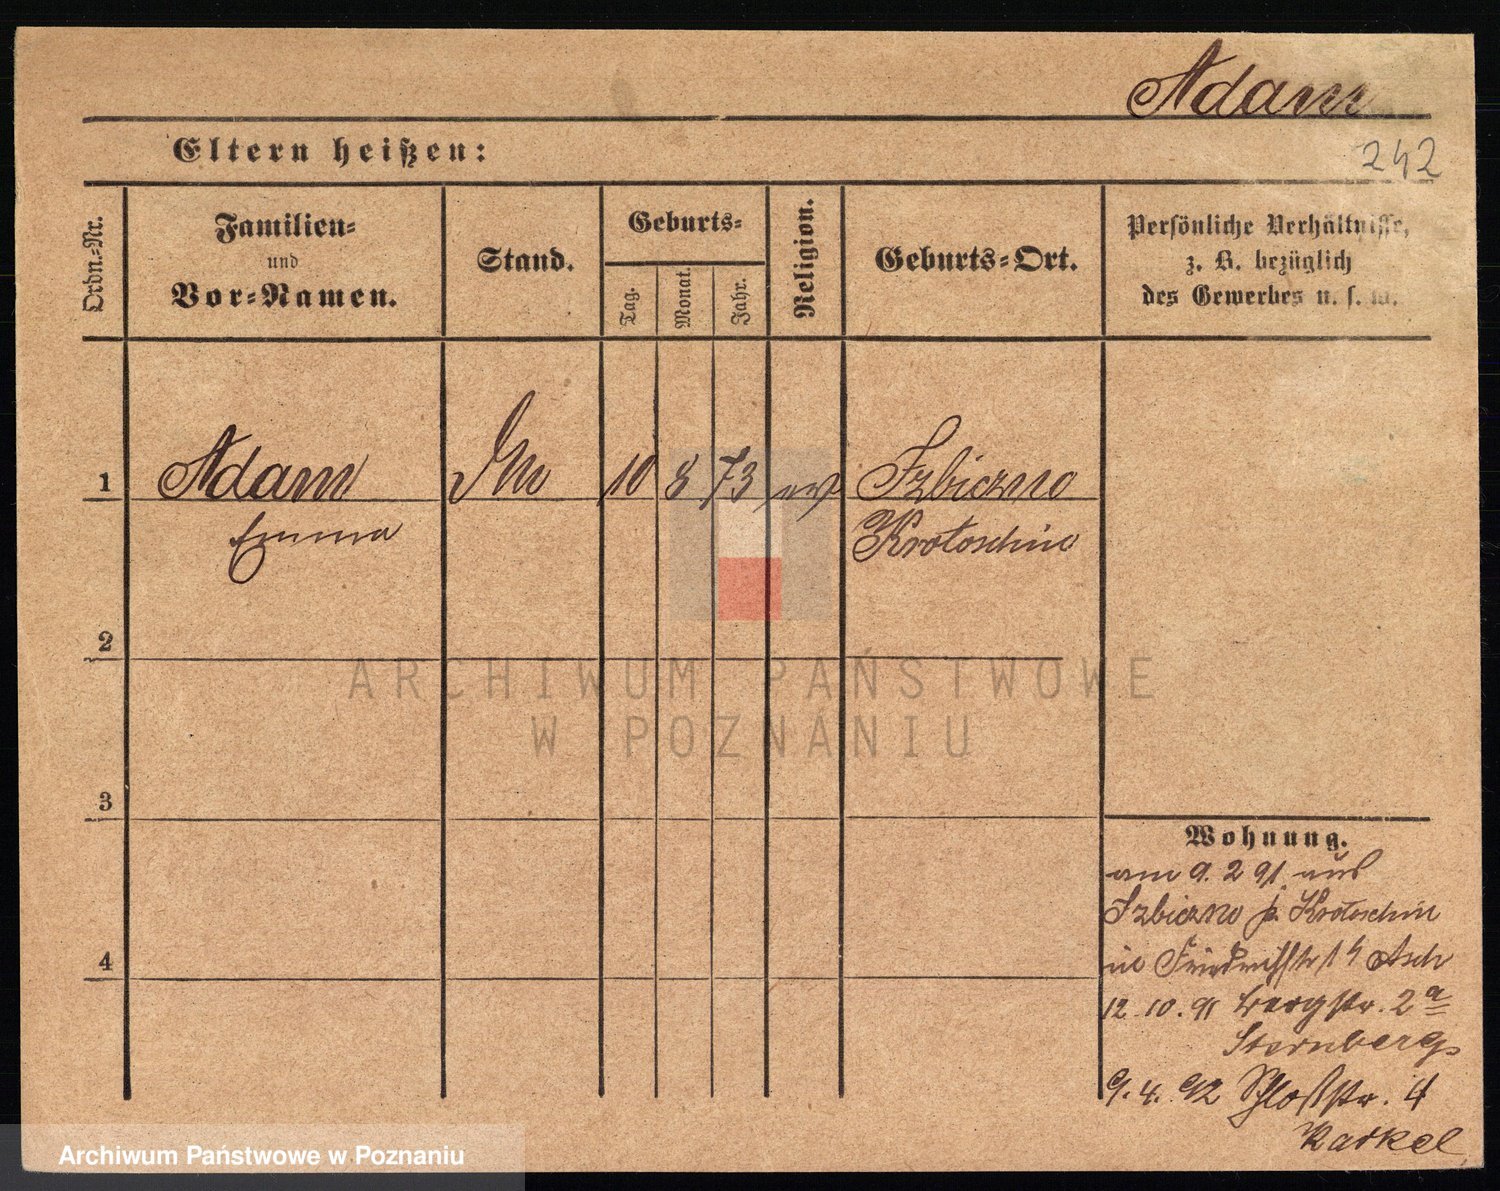 Adam
Eltern heißen:
242
Ordn.-Nr.
Familien-
und
Vor-Namen.
Stand.
Geburts-
Tag.
Monat.
Jahr.
Religion.
Geburts-Ort.
Persönliche Verhältnisse,
z. B. bezüglich
des Gewerbes u. s. w.
1 Adam 10 8 73 ev Izbiczno
Emma Krotoschin
2
3
4
ARCHIWUM PAŃSTWOWE
W POZNANIU
Wohnung.
am 9. 2 91. aus
Izbiczno p. Krotoschin
in Friedrichstr 14 Asch
12. 10. 91 Bergstr. 2a
Sternberg
9. 4. 92 Schloßstr. 4
Archiwum Państwowe w Poznaniu